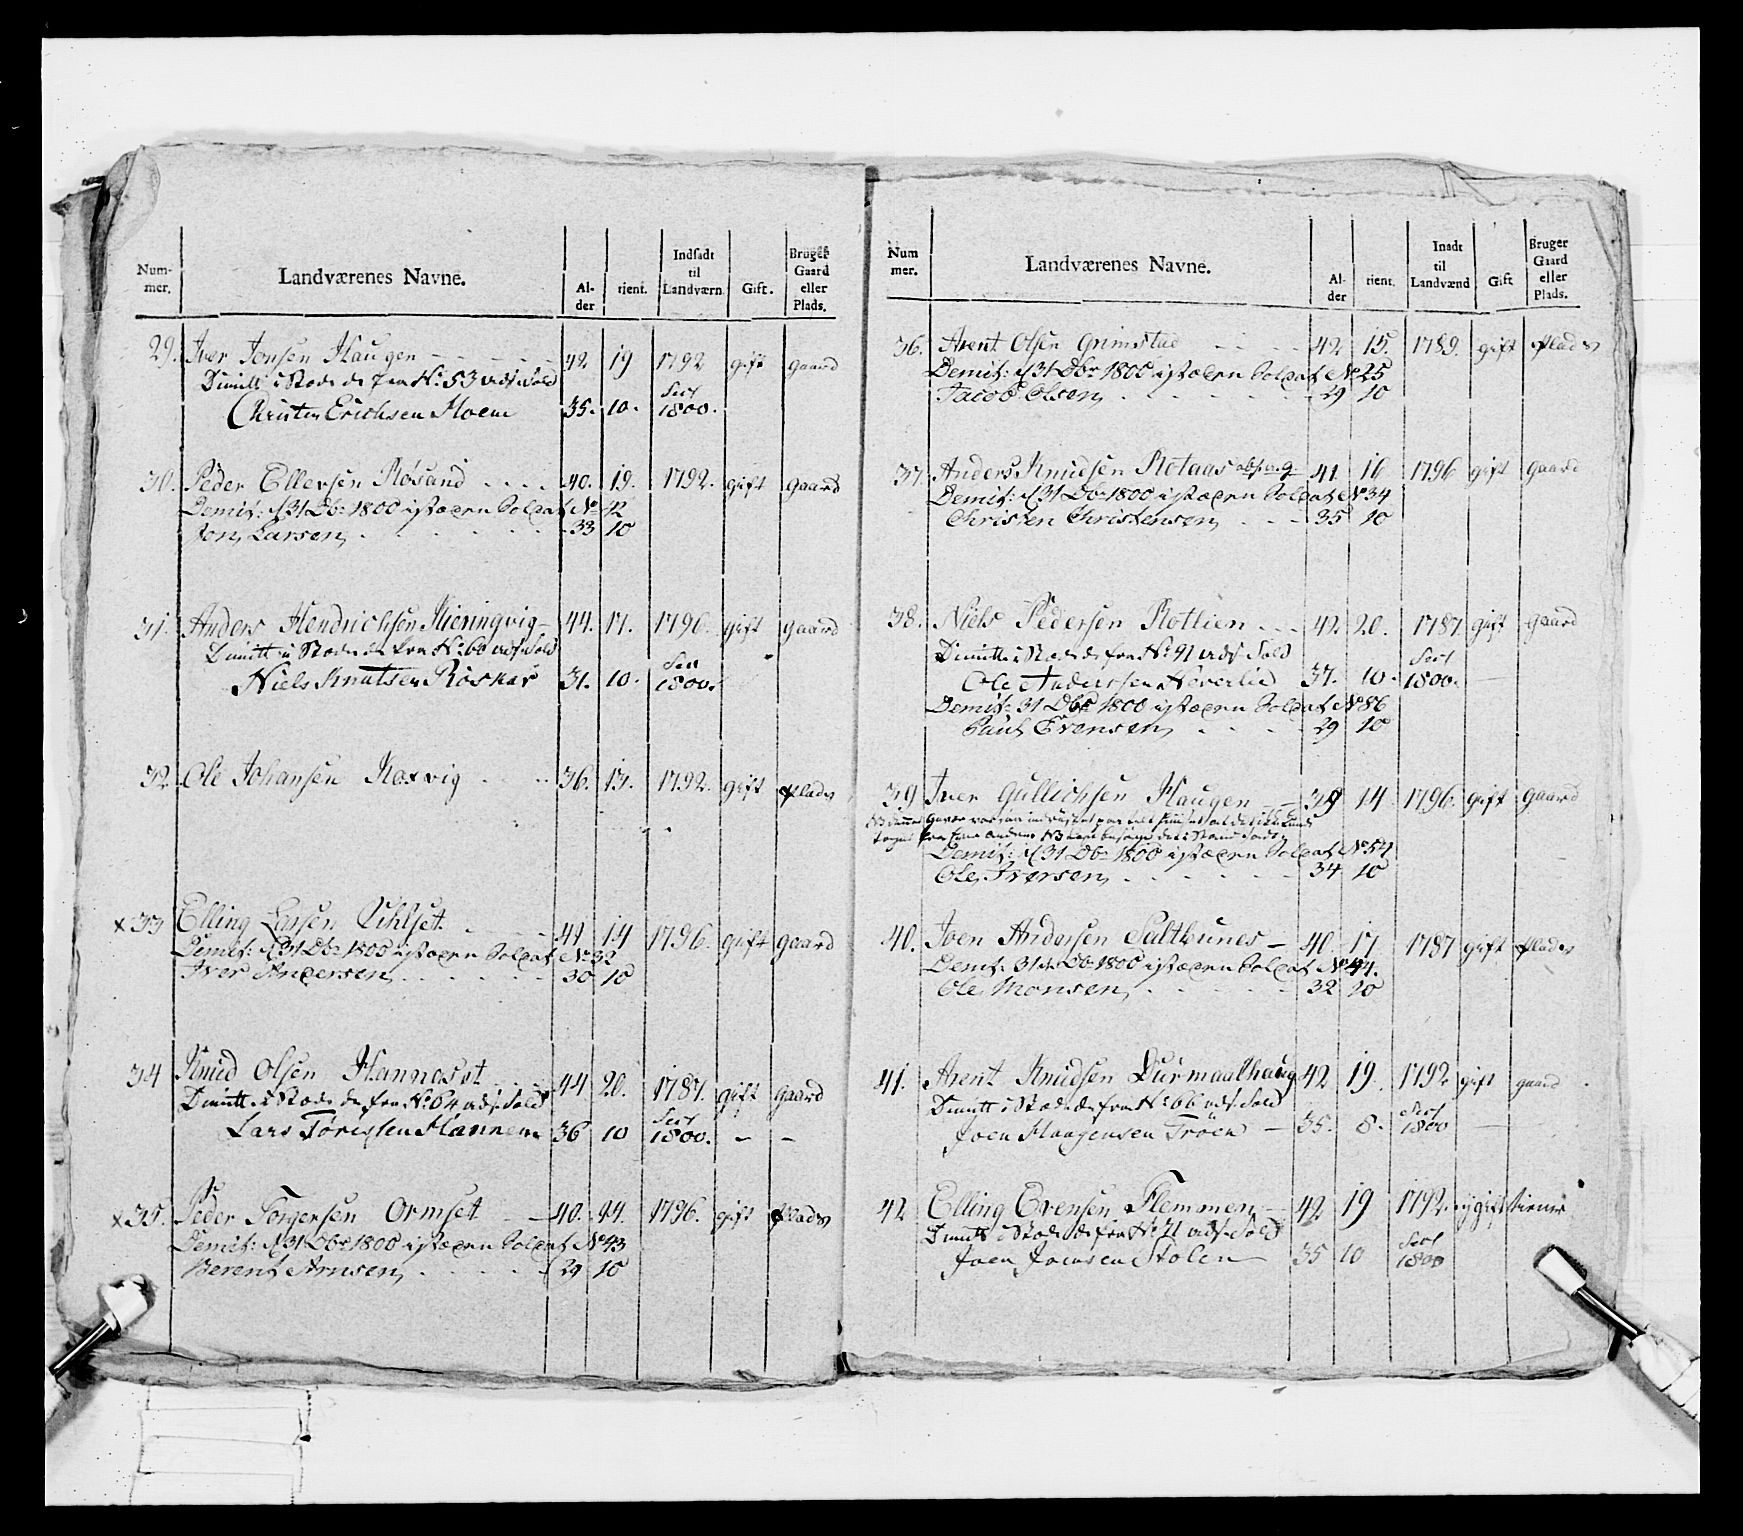 Num-
mer.
Landværenes Navne.
Al-
der
tient.
Indsadt
til
Landværn
Gift.
Bruger
Gaard
eller
Plads.
29. Iver Jonsen Haugen - - - - - 42 19 1792 gift gaard
Dimitt i Stæde de fra No 53 vds. Sold
Christen Erichsen Moene 35. 10. 1800.
30. Peder Ellersen Røsand . . . . 40. 19. 1792. gift gaard
Demit: d 31 Dbr 1800 istæden Soldat No 42
Jon Larsen . . . . . . 33 10
31. Anders Hendrichsen Kieringvig - 44. 17. 1796. gift gaard
Dimitt i Stæde de fra No 60 vds. Sold
Niels Knutsen Røskar 31. 10. 1800.
32. Ole Johansen Koxvig . . . . 36. 13. 1792. gift plads
x 33 Elling Larsen Qihlset . . . . 41 14 1796. gift gaard
Demit: d 31 Dbr 1800 istæden Soldat No 32
Iver Andersen . . . . . . 30 10
34 Knud Olsen Hannaset . . . 44 20. 1787. gift gaard
Dimitt i Stæde de fra No 64 vds. Sold
Lars Torissen Hannem 36 10 1800. - -
x 35. Peder Torgersen Ormset - - 40. 14. 1796. gift plads
Demit: d 31 Dbr 1800 istæden Soldat No 43
Berent Arnsen . . . . . 29 10
Num
mer.
Landværenes Navne.
Al-
der
tient.
Inadt
til
Landvænd
Gift
Bruger
Gaard
eller
Plads.
36. Arent Olsen Grimstad . . . . 42 15. 1789. gift plads
Demit: d 31 Dbr 1800 istæden Soldat No 25
Jacob Olsen . . . . . . 29 10
37. Anders Knudsen Rotaas 41 16 1796 gift gaard
Demit: d 31 Dbr 1800 istæden Soldat No 34
Christen Christensen . . . 35 10
38. Niels Pedersen Rotlien . . . 42 20. 1787 gift gaard
Dimitt i Stæde de fra No 41 vds. Sold
Ole Anderssen Heverlie 37. 10. 1800.
Demit: 31 Dbr 1800 istæden Soldat No 86
Paul Evensen . . . . 29 10
39 Iver Gullichsen Haugen - - 38 14 1796. gift gaard
Demit: d 31 Dbr 1800 istæden Soldat No 54
Ole Iversen . . . . . . 34 10
40. Joen Andersen Saltbunes - 40 17 1787 gift plads
Demit: 31 Dbr 1800 istæden Soldat No 44.
Ole Monsen . . . . . 32 10
41. Arent Knudsen Durmaalhaug 42 19 1792 gift gaard
Dimitt i Stæde de fra No 66 vds. Sold
Joen Haagensen Trøen - 35. 8. 1800 -
42 Elling Evensen Flemmen - 42 19 1792. ugift tiener
Dimitt i Stæde de fra No 71 vds. Sold
Joen Joensen Stolen 35 10 1800